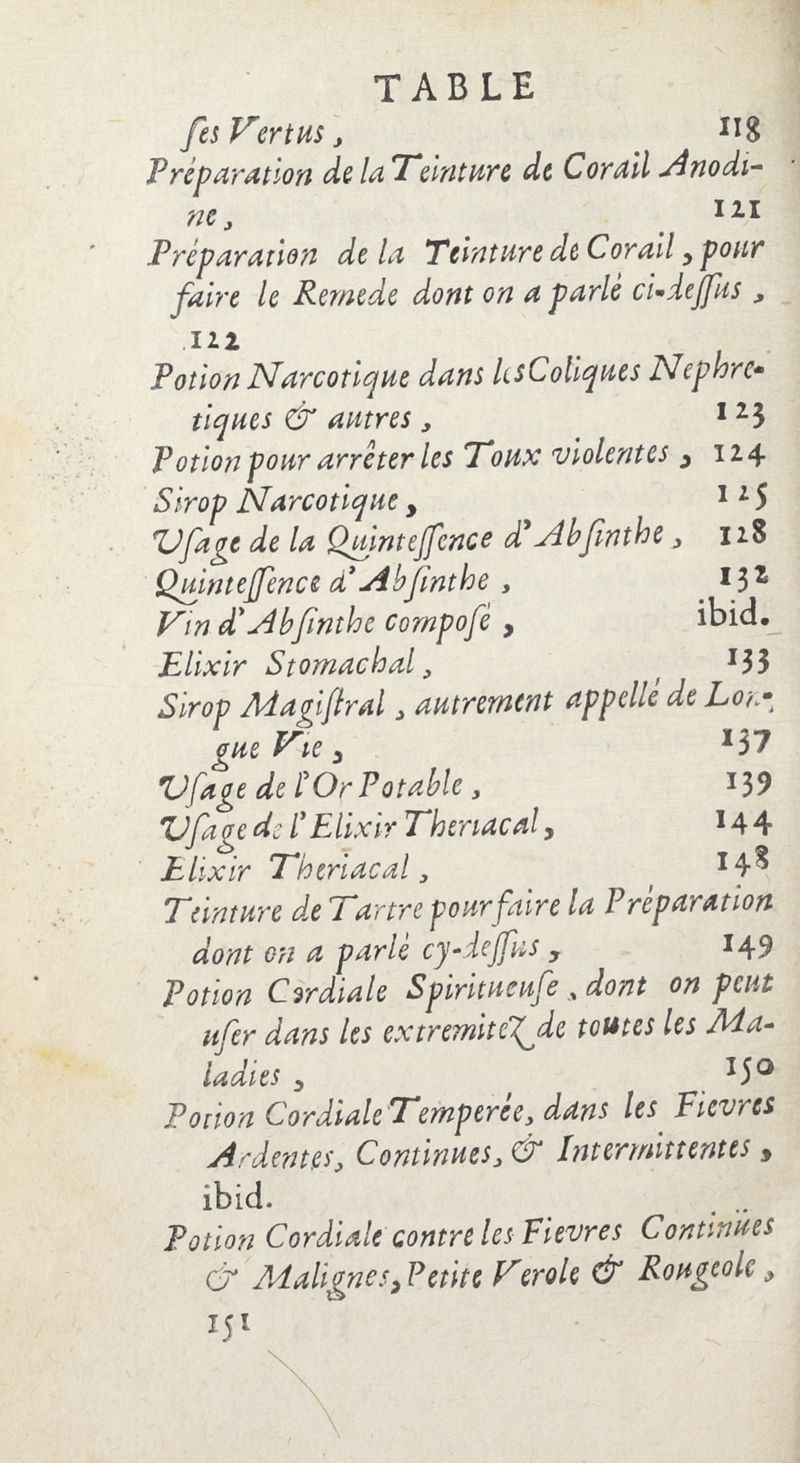 TABLE
ſes Vertus, 118
Préparation de la Teinture de Corail Anodi-
ne, 121
Préparation de la Teinture de Corail, pour
faire le Remede dont on a parlé ci-deſſus,
122
Potion Narcotique dans les Coliques Nephre-
tiques & autres, 123
Potion pour arrêter les Toux violentes, 124
Sirop Narcotique, 125
Uſage de la Quinteſſence d'Abſinthe, 128
Quinteſſence d'Abſinthe, 132
Vin d'Abſinthe compoſé, ibid.
Elixir Stomachal, 133
Sirop Magiſtral, autrement appellé de Lon-
gue Vie, 137
Uſage de l'Or Potable, 139
Uſage de l'Elixir Theriacal, 144
Elixir Theriacal, 148
Teinture de Tartre pour faire la Préparation
dont on a parlé cy-deſſus, 149
Potion Cordiale Spiritueuſe, dont on peut
uſer dans les extremitez de toutes les Ma-
ladies, 150
Potion Cordiale Temperée, dans les Fievres
Ardentes, Continues, & Intermittentes,
ibid.
Potion Cordiale contre les Fievres Continües
& Malignes, Petite Verole & Rougeole,
151